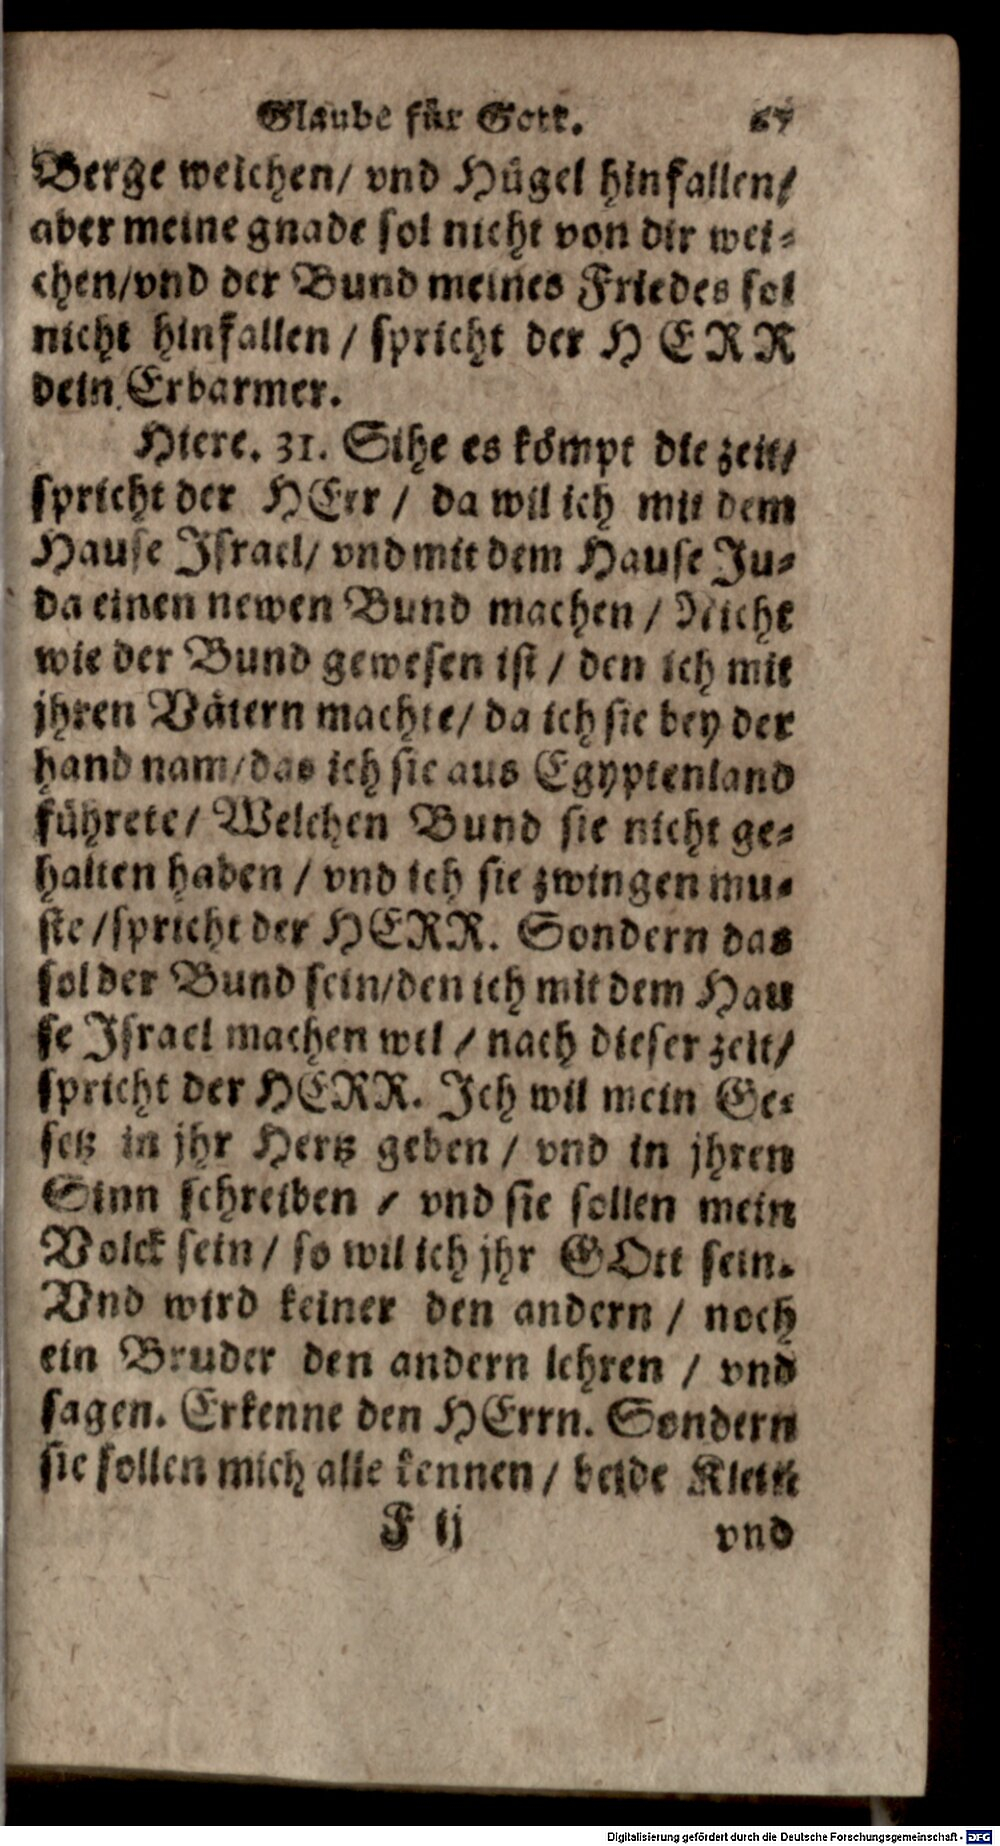 Glaube für Gott. 67
Berge weichen/ vnd Hügel hinfallen/
aber meine gnade sol nicht von dir wei⸗
chen/vnd der Bund meines Friedes sol
nicht hinfallen / spricht der HERR
dein Erbarmer.
Hiere. 31. Sihe es kömpt die zeit/
spricht der HErr / da wil ich mit dem
Hause Jsrael/ vnd mit dem Hause Ju⸗
da einen newen Bund machen / Nicht
wie der Bund gewesen ist / den ich mit
jhren Vätern machte/ da ich sie bey der
hand nam/das ich sie aus Egyptenland
führete/ Welchen Bund sie nicht ge⸗
halten haben / vnd ich sie zwingen mu⸗
ste /spricht der HERR. Sondern das
sol der Bund sein/den ich mit dem Hau
se Jsrael machen wil / nach dieser zeit/
spricht der HERR. Jch wil mein Ge⸗
setz in jhr Hertz geben / vnd in jhren
Sinn schreiben / vnd sie sollen mein
Volck sein/ so wil ich jhr GOtt sein.
Vnd wird keiner den andern / noch
ein Bruder den andern lehren / vnd
sagen. Erkenne den HErrn. Sondern
sie sollen mich alle kennen / beide Klein
F ij vnd
Digitalisierung gefördert durch die Deutsche Forschungsgemeinschaft - DFG